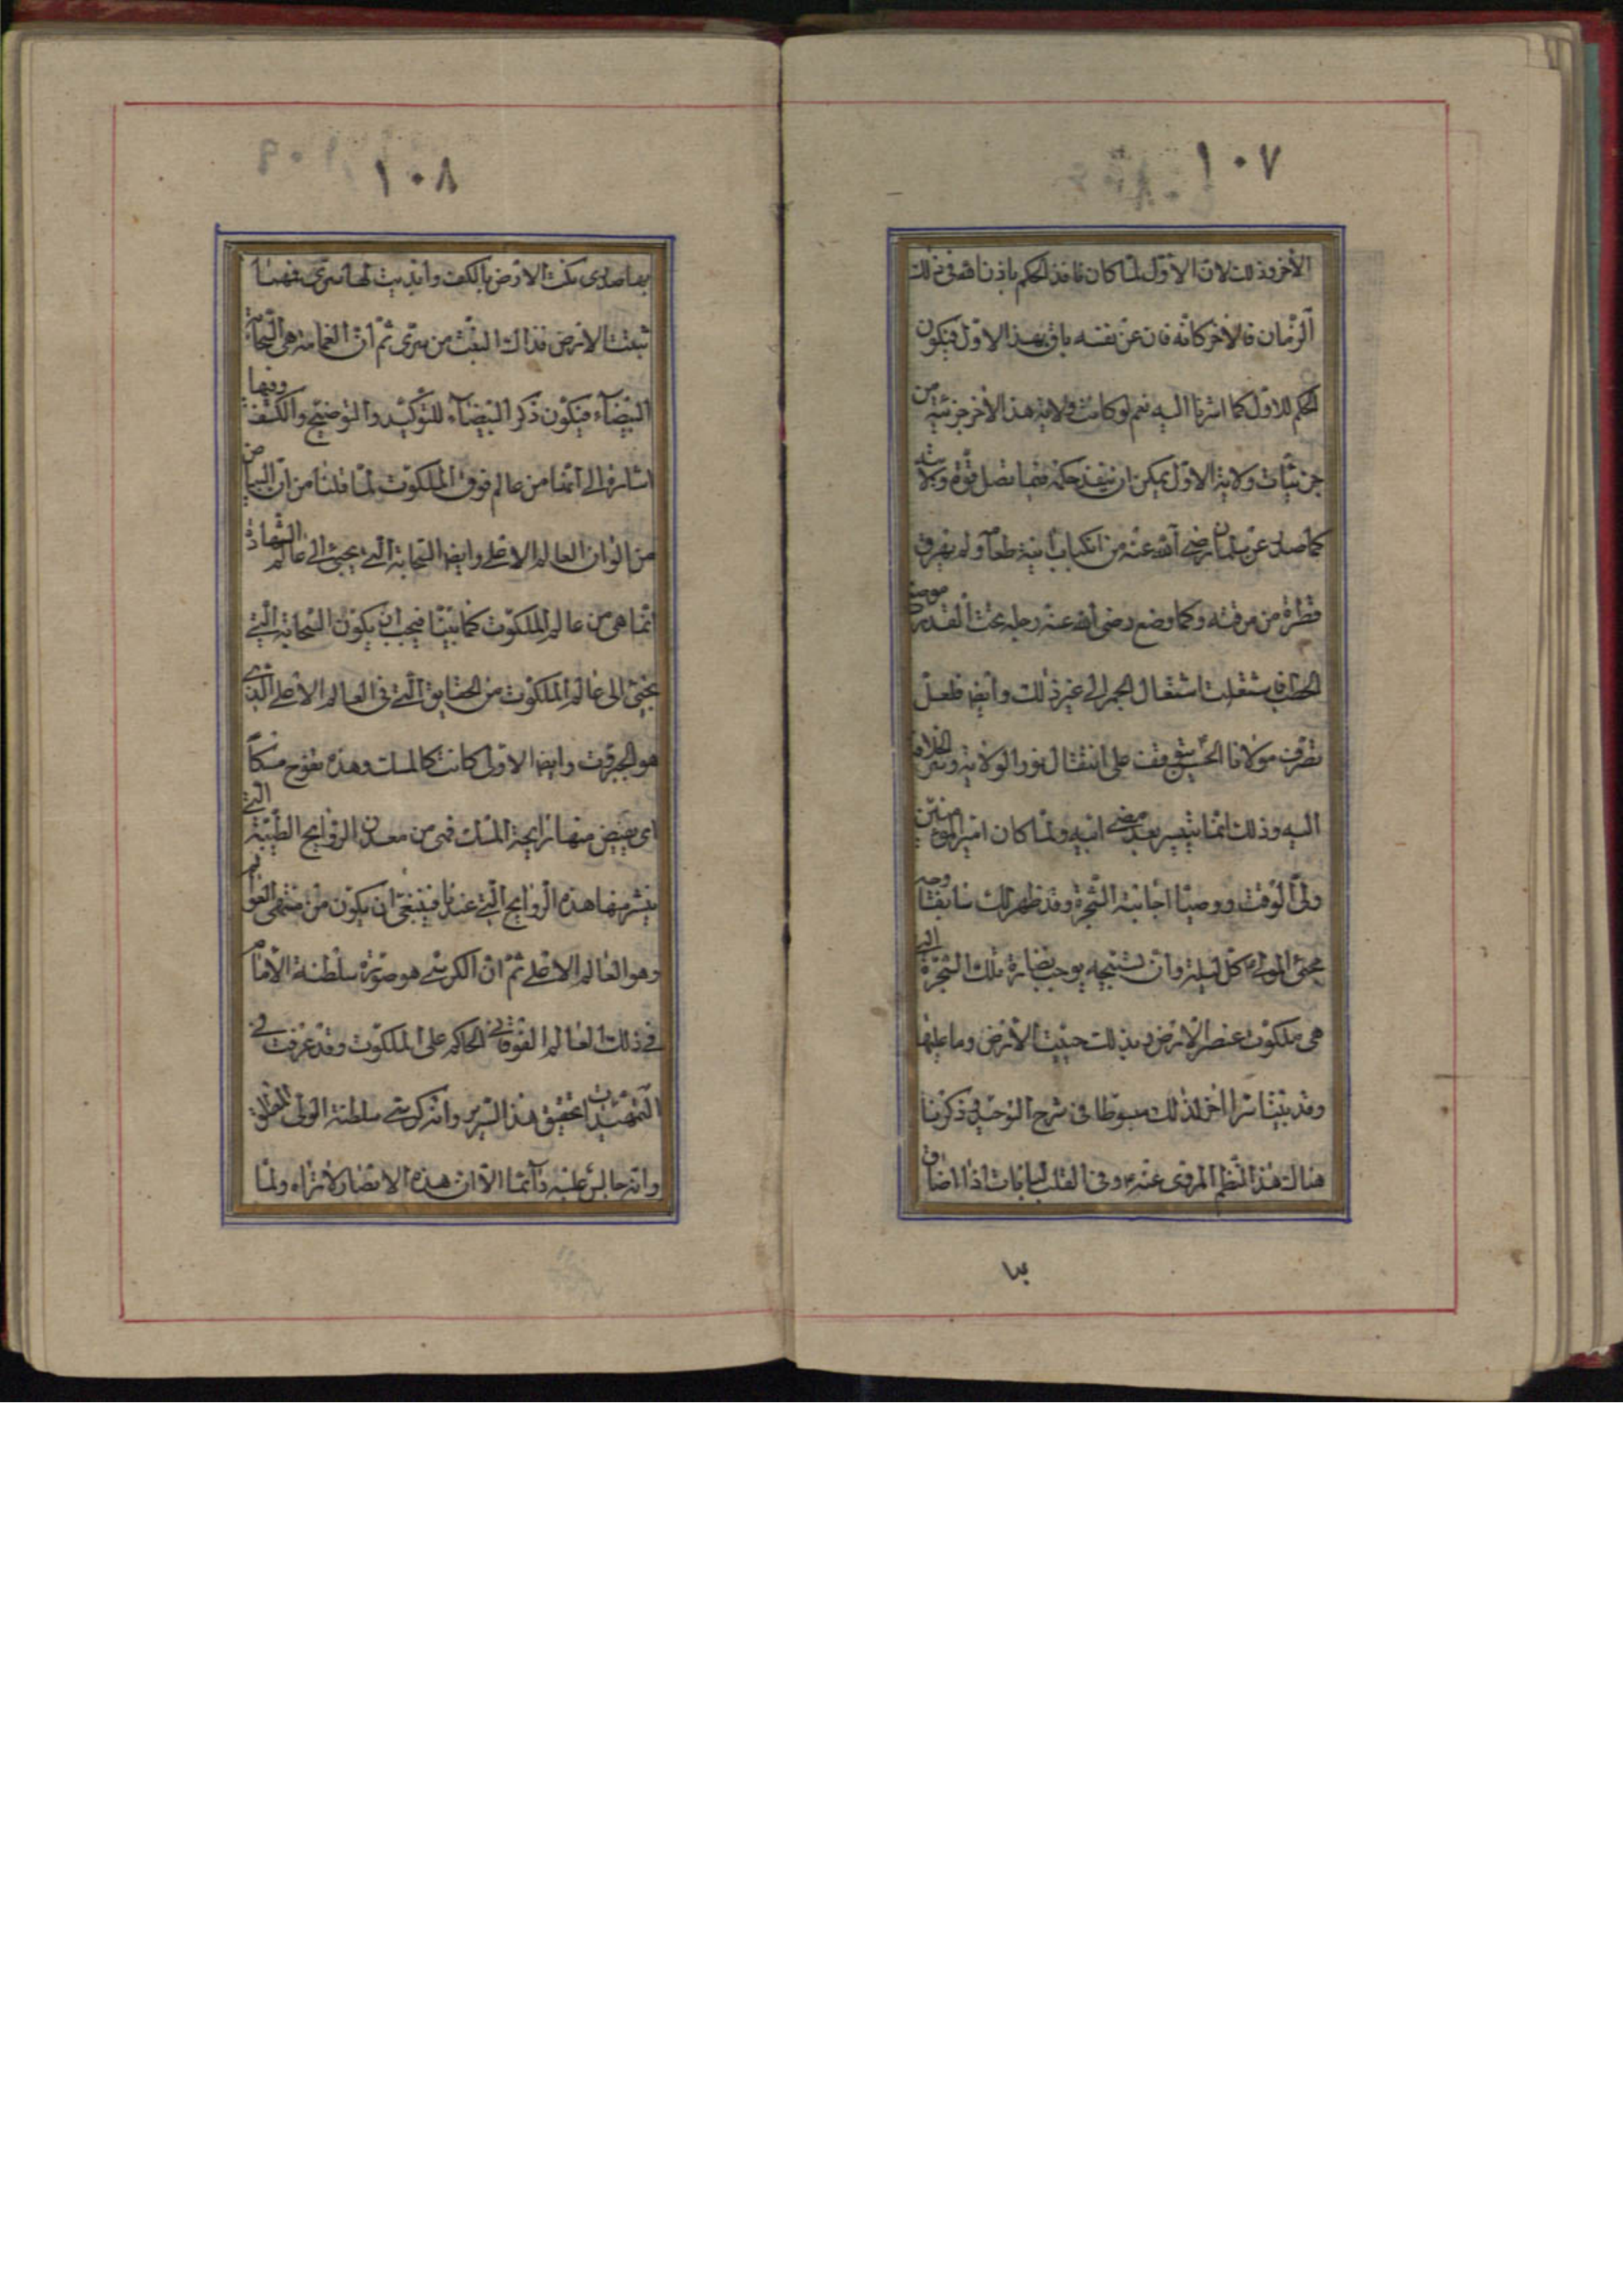 ١٠٧
الأخر وذلك لان الاوّل لمّا كان نافذ الحكم باذن الله في ذلك
الزمان فالأخر كانّه فان عن نفسه باق بهذا الاوّل فيكون
الحكم للاوّل كما اشرنا اليه نعم لو كانت ولاية هذا الأخر جزئية من
جزئيّات ولاية الاوّل يمكن ان ينفذ حكمه فيما تصل قوّة ولايته
كما صدر عن سلمان رضي الله عنه من انكباب انية طعام ولم يهرق
قطرة من مرقته وكما وضع رضي الله عنه رجله تحت القدر موضع
الحطب فاشتعلت اشتعال الجمر الى غير ذلك وأيضا فلعلّ
تصرّف مولانا الحسين يتوقف على انتقال نور الولاية وسرّ الخلافة
اليه وذلك انّما يتيسر بعد مضي ابيه ولمّا كان امير المؤمنين
وليّ الوقت ووصيّا اجابته الشجرة وقد ظهر لك سابقا وجه
مجيئ المولى كل ليلة وأن تسبيحه يوجب نضارة تلك الشجرة التي
هي ملكوت عنصر الارض وبذلك حييت الأرض وما عليها
وقد بيّنا سرّا اخر لذلك مبسوطا في شرح التوحيد وذكرنا
هناك هذا النظم المروي عنه وفي القلب لبانات اذا ضاق
بها
١٠٨
بها صدري نكت الارض بالكف وأبديت لها سرّي فمهما
تنبت الارض فذاك النبت من سرّي ثمّ انّ الغمامة هي السحابة
البيضاء فيكون ذكر البيضاء للتوكيد والتوضيح والكشف وفيها
اشارة الى انّها من عالم فوق الملكوت لما قلنا من انّ البياض
من الوان العالم الاعلى وايضا السحابة التي يجيئ الى عالم الشهادة
انّما هي من عالم الملكوت كما بيّنا فيجب ان يكون السحابة التي
يجيئ الى عالم الملكوت من الحقايق التي في العالم الاعلى الذي
هو الجبروت وايضا الاولى كانت كالمسك وهذه تفوح مسكاً
اى يفيض منها رايحة المسك فهي من معدن الروايح الطيّبة التي
ينشر منها هذه الروايح التي عندنا فينبغي ان يكون من منتهى العوالم
وهو العالم الاعلى ثمّ انّ الكرسي هو صورة سلطنة الأمام
في ذلك العالم الفوقاني الحاكم على الملكوت وقد عرفت في
التمهيدات تحقيق هذا السرير وانه كرسي سلطنة الولى المطلق
وانه جالس عليه دائما الاّ ان هذه الابصار لا تراه ولمّا